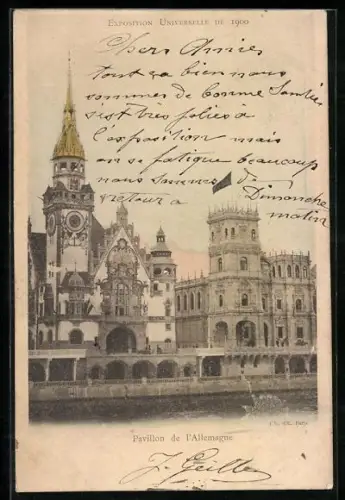 EXPOSITION UNIVERSELLE DE 1900
Chers Amies
tout va bien nous
sommes de bonne
s'est très jolies à
l'exposition mais
on se fatigue beaucoup
nous sommes de
retour à Dimanche
matin
Pavillon de l'Allemagne